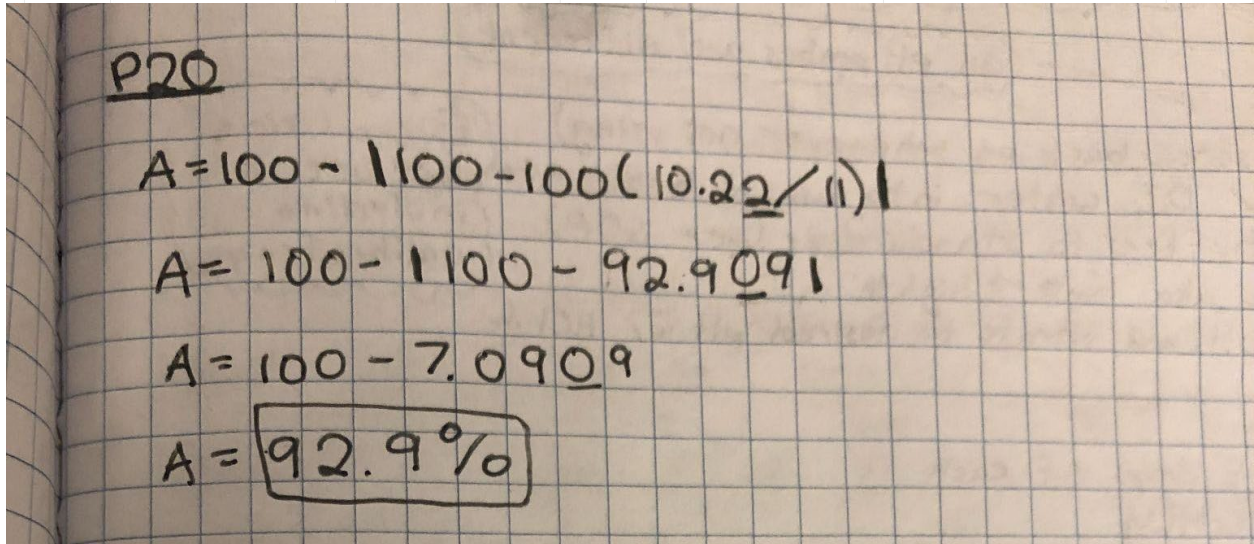 P20
A=100-|100-100(10.22/11)|
A= 100-|100-92.909|
A= 100-7.0909
A= 92.9%